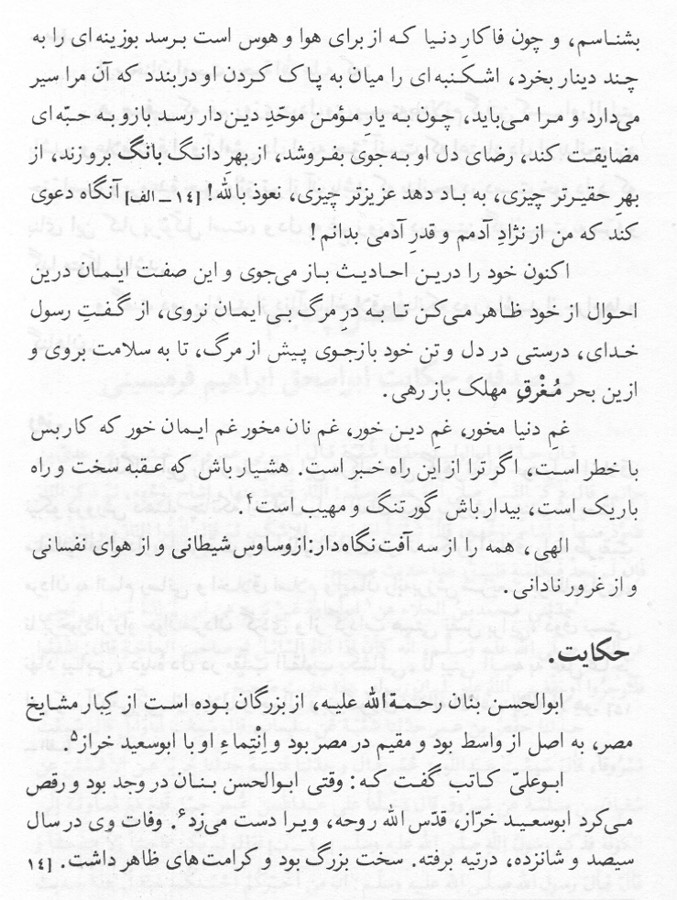 بشناسم، و چون فاکار دنیا که از برای هوا و هوس است برسد بوزینه‌ای را به
چند دینار بخرد، اشکنبه‌ای را میان به پاک کردن او دربندد که آن مرا سیر
می‌دارد و مرا می‌باید، چون به یارِ مؤمن موحّدِ دین‌دار رسد بازو به حبّه‌ای
مضایقت کند، رضای دل او به‌جوی بفروشد، از بهرِ دانگ بانگ بروزند، از
بهرِ حقیرتر چیزی، به باد دهد عزیزتر چیزی، نعوذ باللّه! [۱۴ ــ الف] آنگاه دعوی
کند که من از نژادِ آدمم و قدرِ آدمی بدانم!
اکنون خود را درین احادیث باز می‌جوی و این صفت ایمان درین
احوال از خود ظاهر می‌کن تا به درِ مرگ بی ایمان نروی، از گفتِ رسول
خدای، درستی در دل و تن خود بازجوی پیش از مرگ، تا به سلامت بروی و
ازین بحر مُغْرِقِ مهلک باز رهی.
غم دنیا مخور، غمِ دین خور، غم نان مخور غم ایمان خور که کار بس
با خطر است، اگر ترا از این راه خبر است. هشیار باش که عقبه سخت و راه
باریک است، بیدار باش گور تنگ و مهیب است۴.
الهی، همه را از سه آفت نگاه‌دار: از وساوس شیطانی و از هوای نفسانی
و از غرور نادانی.
حکایت.
ابوالحسن بنان رحمة اللّه علیه، از بزرگان بوده است از کِبار مشایخ
مصر، به اصل از واسط بود و مقیم در مصر بود و اِنْتِماءِ او با ابوسعید خراز۵.
ابوعلیّ کاتب گفت که: وقتی ابوالحسن بنان در وجد بود و رقص
می‌کرد ابوسعید خرّاز، قدّس اللّه روحه، ویرا دست می‌زد۶. وفات وی در سال
سیصد و شانزده، درتیه برفته. سخت بزرگ بود و کرامت‌های ظاهر داشت. [۱۴